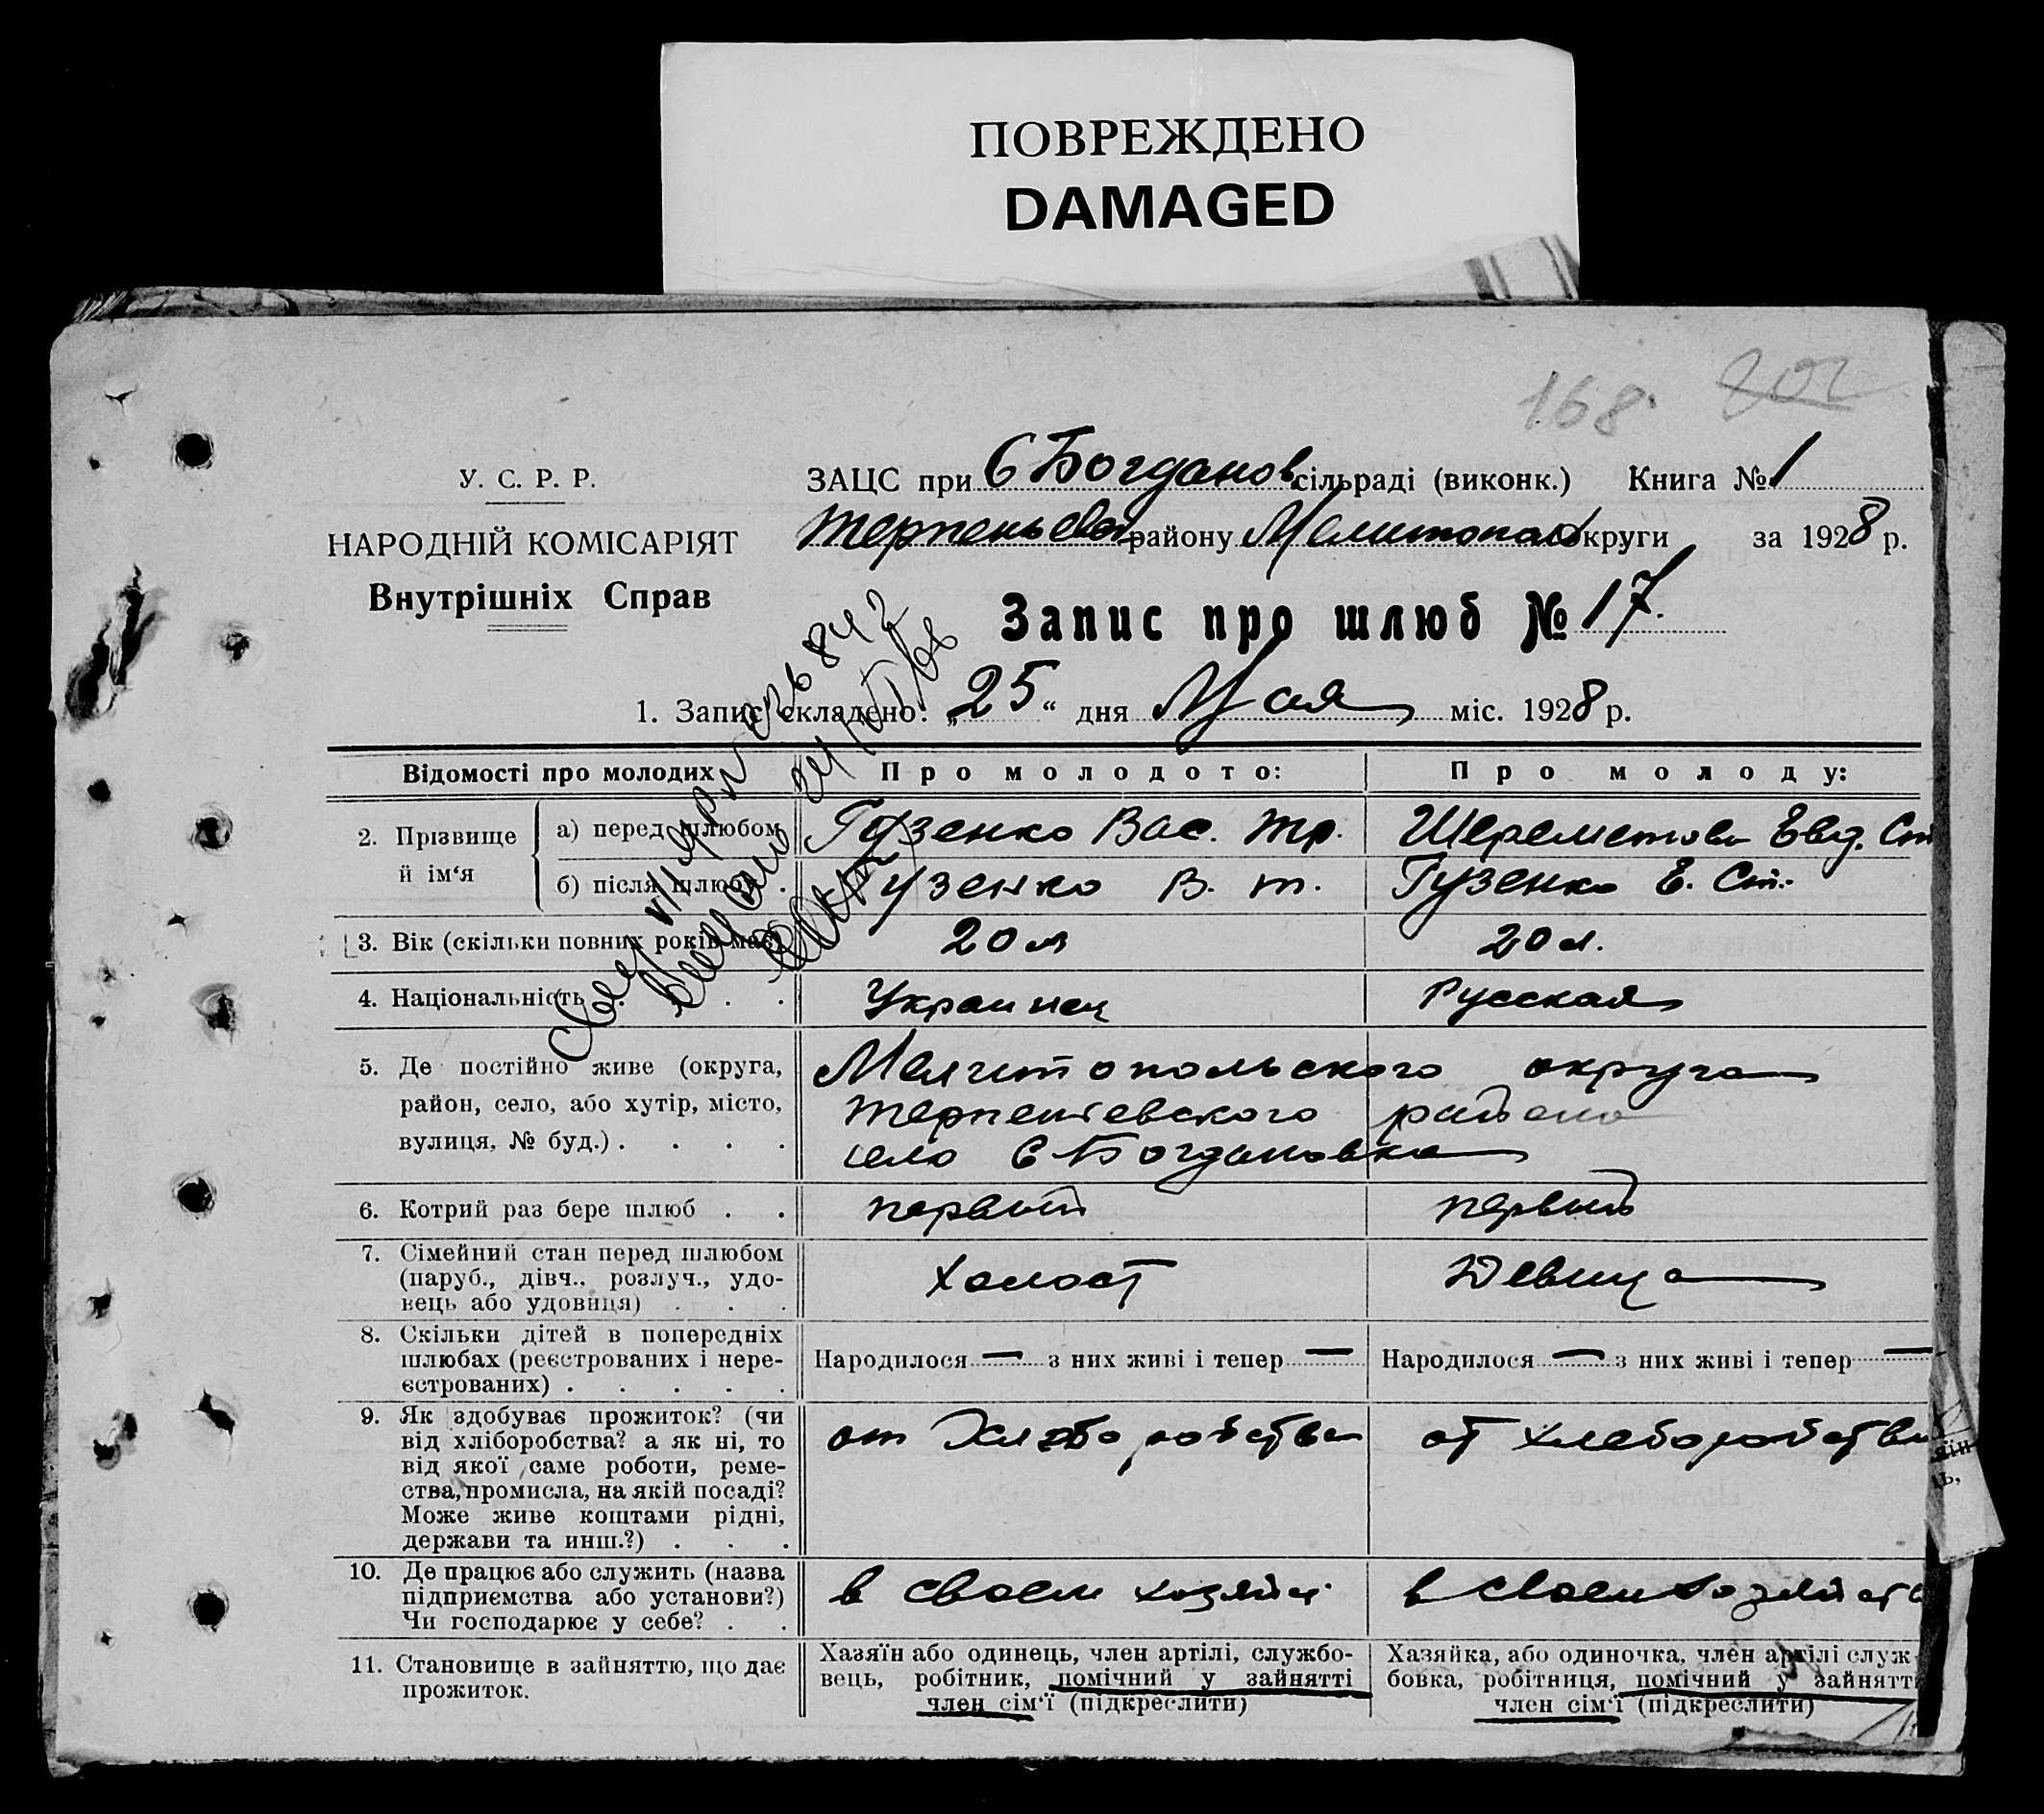 ПОВРЕЖДЕНО
DAMAGED
168. 202
У. С. Р. Р.
НАРОДНІЙ КОМІСАРІЯТ
Внутрішніх Справ
ЗАЦС при С Богданов сільраді (виконк.) Книга № 1
Терпеньевск району Мелитопол округи за 1928 р.
Запис про шлюб № 17.
1. Запис складено: „25“ дня Мая міс. 1928 р.
Відомості про молодих
Про молодого:
Про молоду:
2. Прізвище й ім‘я
а) перед шлюбом
Гузенко Вас. Тр.
Шереметова Евд. Ст
б) після шлюбу .
Гузенко В. Т.
Гузенко Е. Ст.
3. Вік (скільки повних років має)
20 л
20 л.
4. Національність . . . .
Украинец
Русская
5. Де постійно живе (округа,
район, село, або хутір, місто,
вулиця, № буд.) . . . .
Мелитопольского округа
Терпениевского района
село С Богдановка
6. Котрий раз бере шлюб . .
первый
первый
7. Сімейний стан перед шлюбом
(паруб., дівч.. розлуч., удо-
вець або удовиця) . . .
холост
Девица
8. Скільки дітей в попередніх
шлюбах (реєстрованих і нере-
єстрованих) . . . . .
Народилося — з них живі і тепер —
Народилося — з них живі і тепер —
9. Як здобуває прожиток? (чи
від хліборобства? а як ні, то
від якої саме роботи, реме-
ства, промисла, на якій посаді?
Може живе коштами рідні,
держави та инш.?) . . .
от Хлеборобства
от хлеборобства
10. Де працює або служить (назва
підприємства або установи?)
Чи господарює у себе? . .
в своем хозяйст
в своем хозяйств
11. Становище в зайняттю, що дає
прожиток.
Хазяїн або одинець, член артілі, службо-
вець, робітник, помічний у зайнятті
член сім‘ї (підкреслити)
Хазяйка, або одиночка, член артілі служ-
бовка, робітниця, помічний у зайнятті
член сім‘ї (підкреслити)